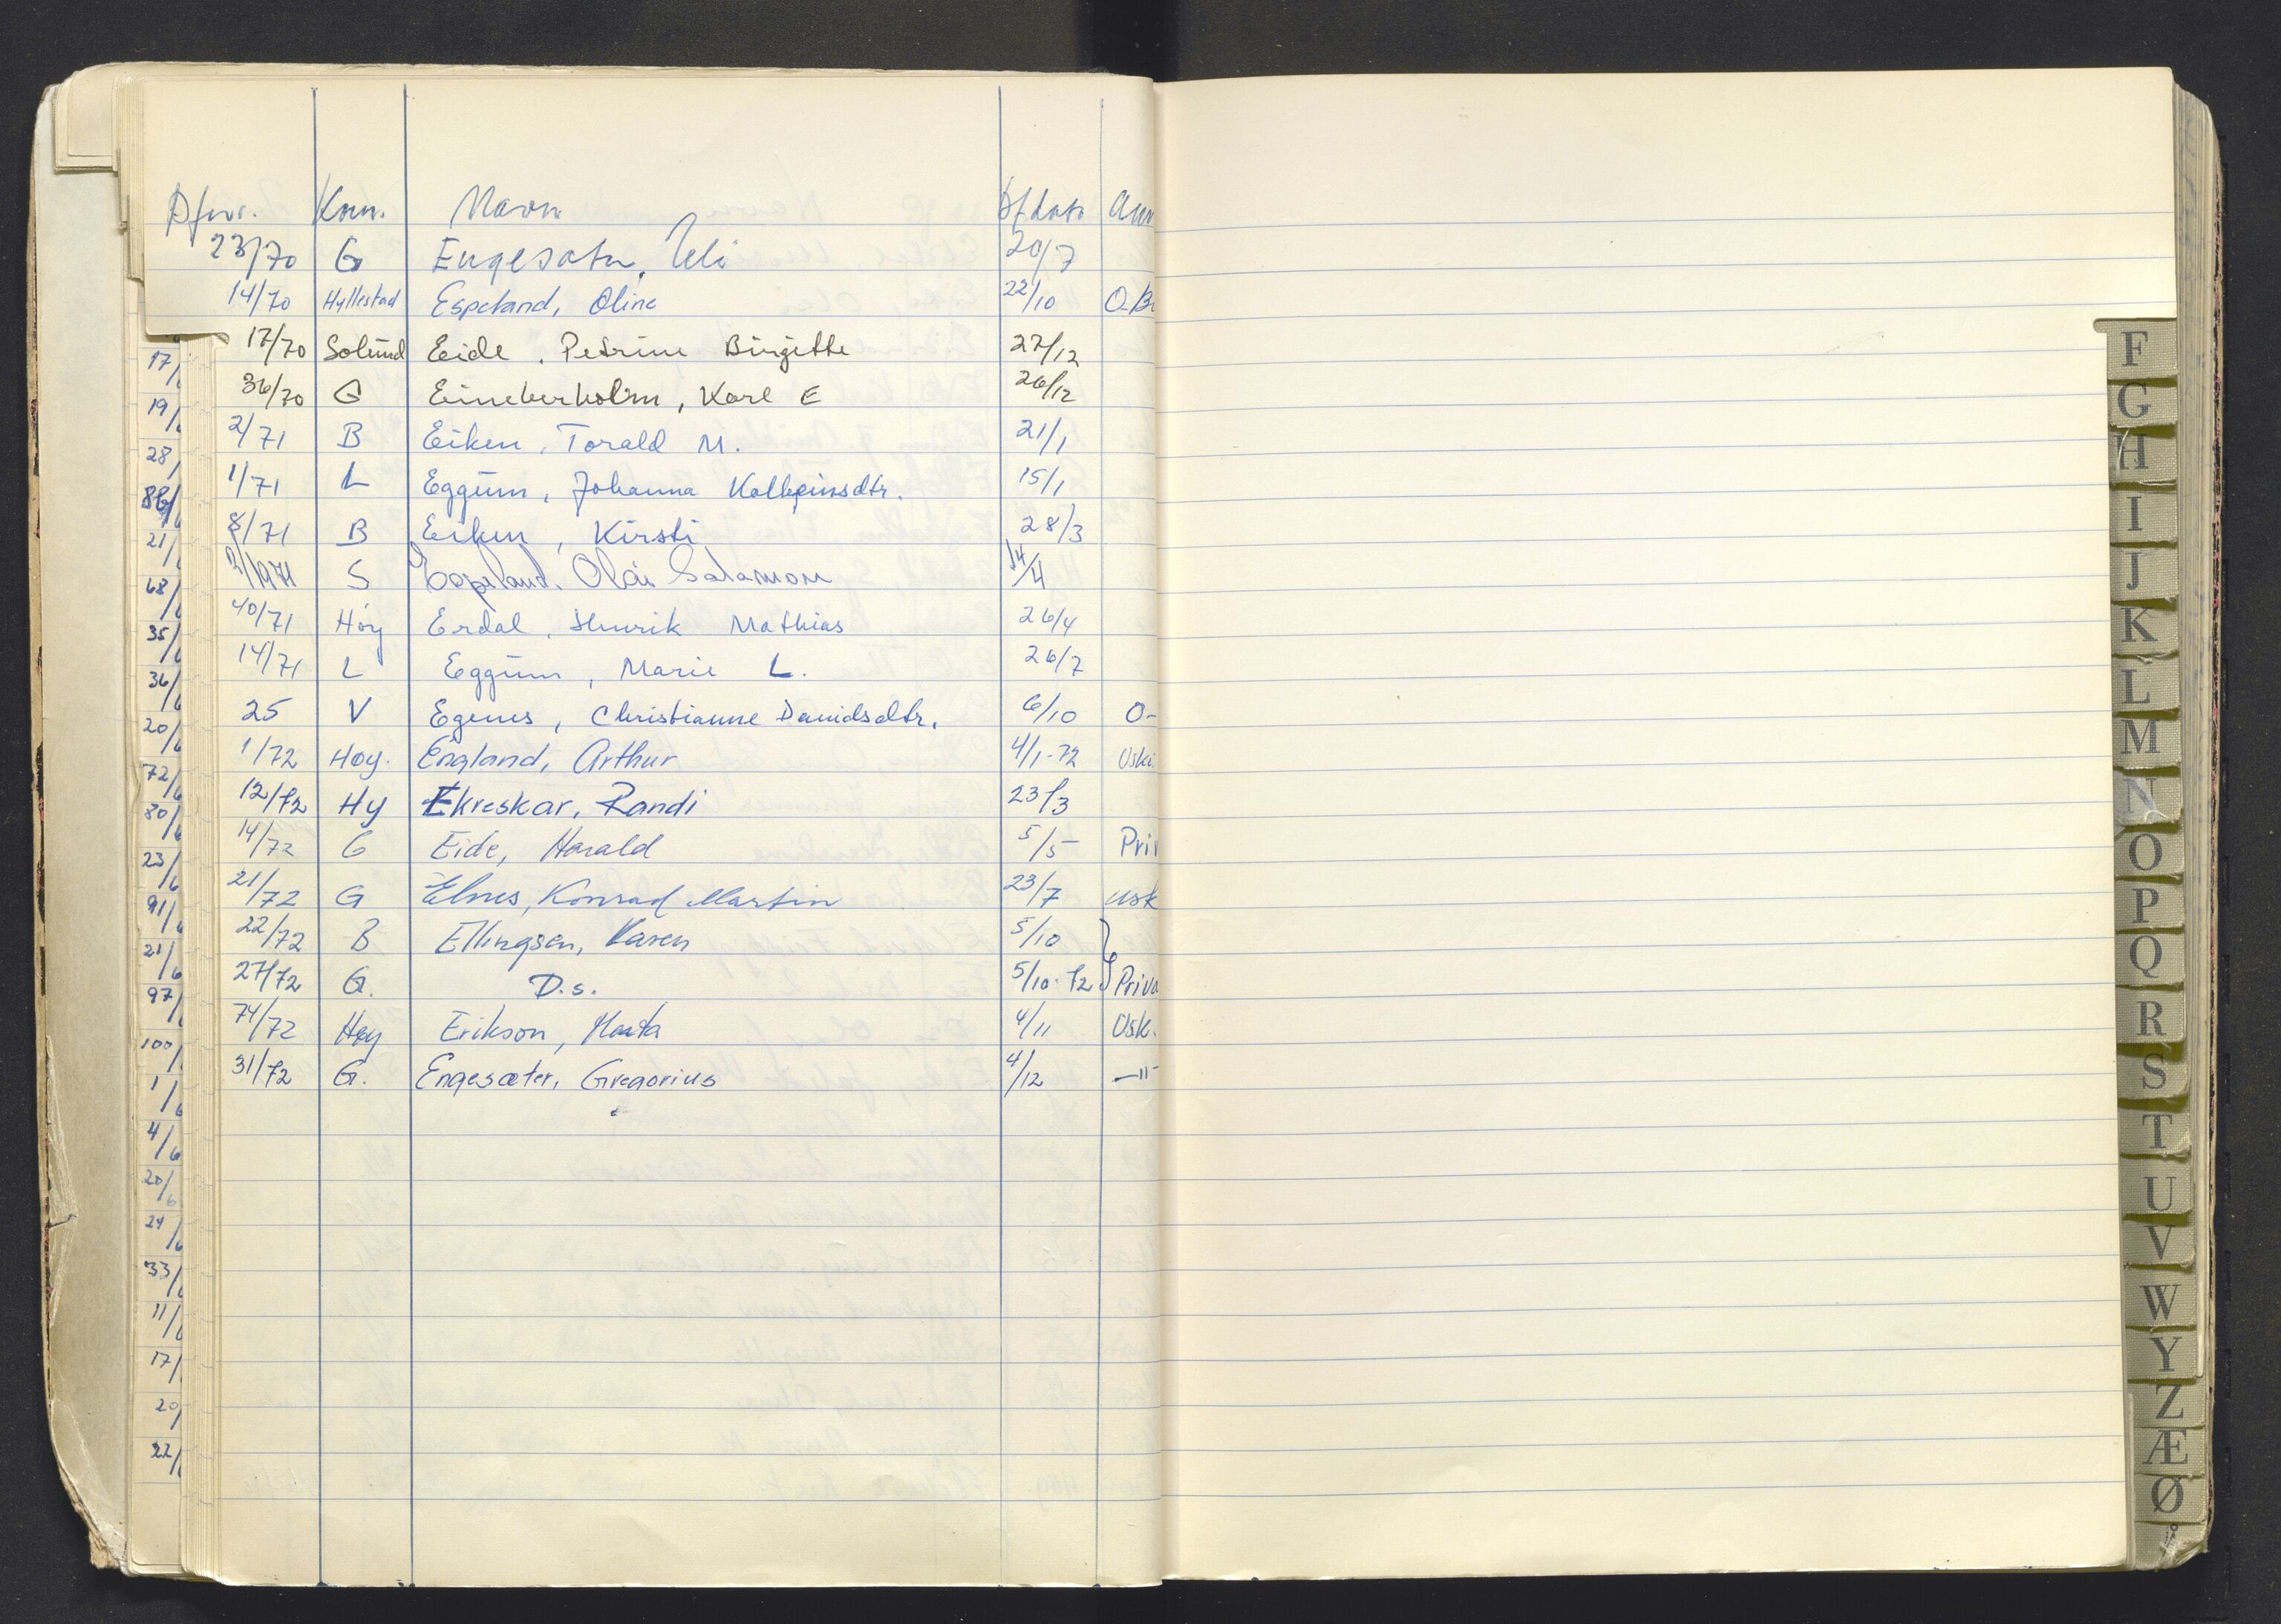 Dfnr. Kom. Navn Df dato Anm
23/70 G Engesæter, Eli 20/7
14/70 Hyllestad Espeland, Oline 22/10 O-B
17/70 Solund Eide, Petrine Birgitte 27/12
36/70 G Karl E 26/12
2/71 B Eiken, Torald M. 21/1
1/71 L Eggum, Johanna Kolbeinsdtr. 15/1
8/71 B Eiken, Kirsti 28/3
/1971 S Espeland, Olai Salamon 14/4
40/71 Høy Erdal, Henrik Mathias 26/4
14/71 L Eggum, Marie L. 26/7
25 V Egenes, Christianne Davidsdtr. 6/10 O-
1/72 Høy. England, Arthur 4/1-72 Uski
12/72 Hy Ekreskar, Randi 23/3
14/72 G Eide, Harald 5/5 Pri
21/72 G Elnes, Konrad Martin 23/7 usk
22/72 B Ellingsen, Karen 5/10
27/72 G. D.s. 5/10-72 Priva
74/72 Høy Erikson, Marta 4/11 Usk.
31/72 G. Engesæter, Gregorius 4/12 —"—
17/
19/
28/
86/
21/
68/
35/
36/
20/6
72/
80/6
23/6
91/6
21/6
97/
100/
1/6
4/6
20/6
24/6
33/
11/
17/
20/
22/
F
G
H
I
J
K
L
M
N
O
P
Q
R
S
T
U
V
W
Y
Z
Æ
Ø